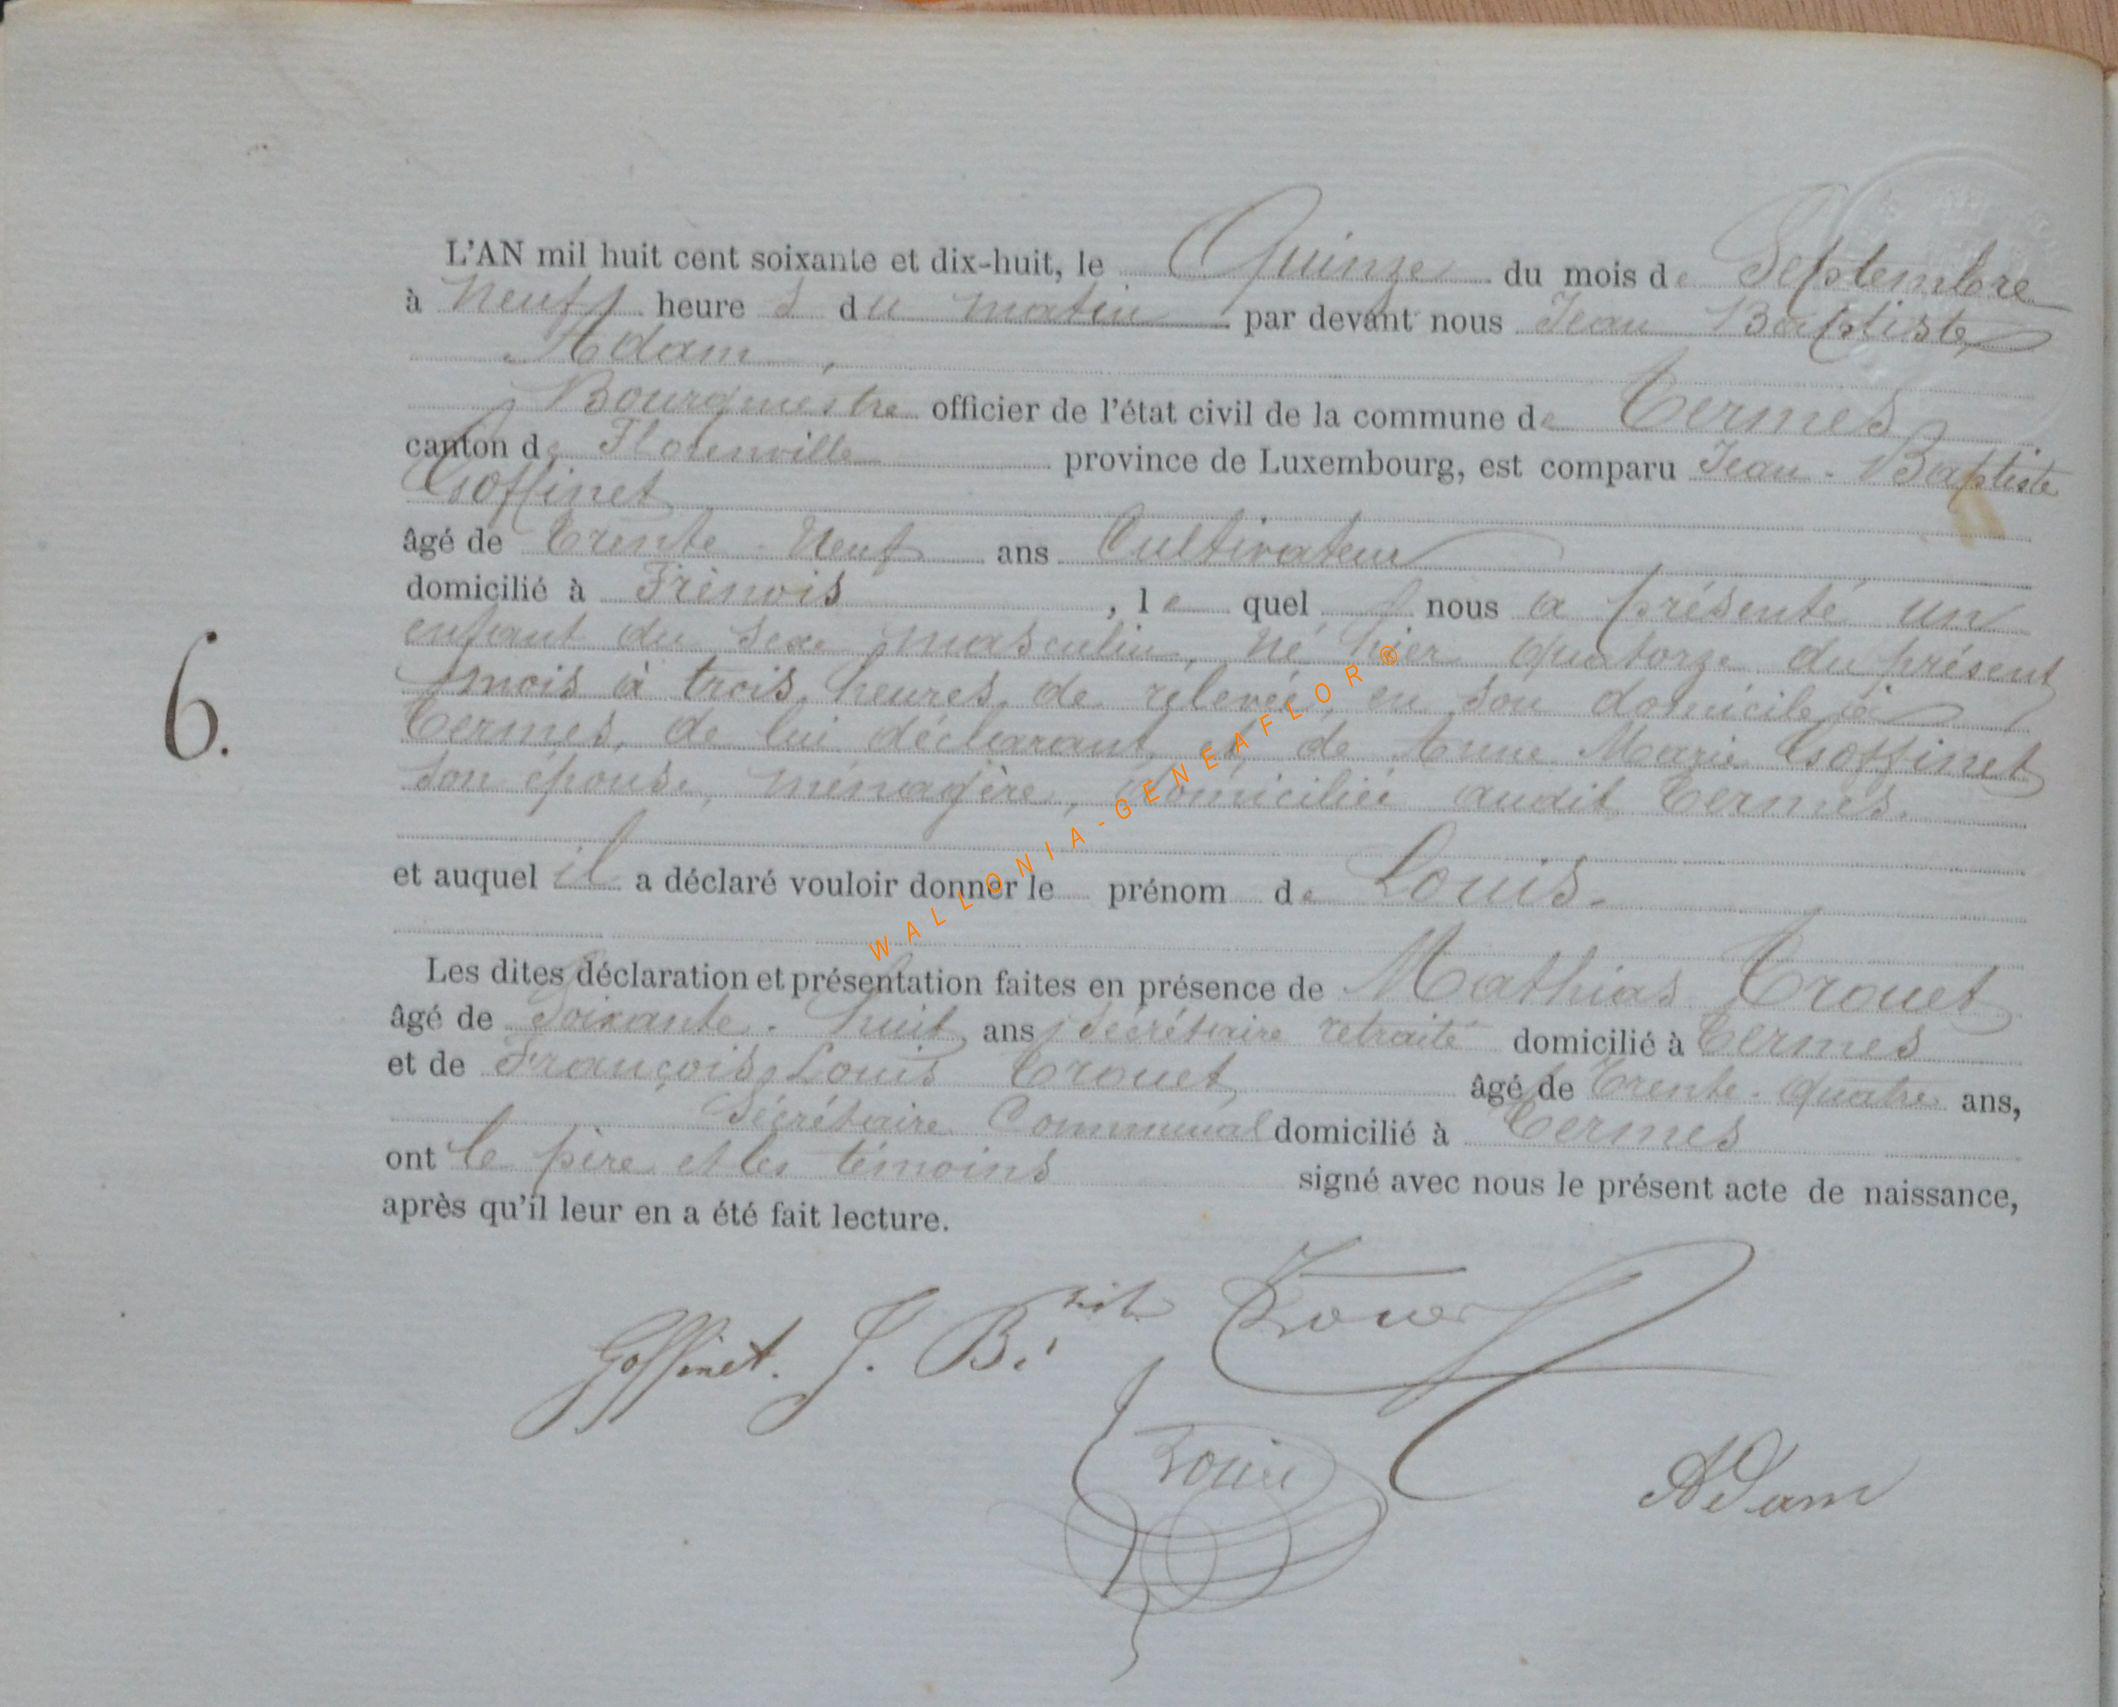 L'AN mil huit cent soixante et dix-huit, le Quinze du mois de Septembre
à Neuf heures du matin par devant nous Jean Baptiste
Adam,
Bourgmestre officier de l'état civil de la commune de Termes
canton de Florenville province de Luxembourg, est comparu Jean-Baptiste
Goffinet
âgé de Trente-Neuf ans Cultivateur
domicilié à Frénois, lequel nous a présenté un
enfant du sexe masculin, né hier quatorze du présent
mois à trois heures de relevée, en son domicile à
Termes, de lui déclarant et de Anne Marie Goffinet
son épouse, ménagère, domiciliée audit Termes.
6.
et auquel il a déclaré vouloir donner le prénom de Louis.
Les dites déclaration et présentation faites en présence de Mathias Trouet
âgé de Soixante-huit ans, Sécrétaire retraité domicilié à Termes
et de François Louis Trouet, âgé de Trente-quatre ans,
Sécrétaire Communal domicilié à Termes
ont le père et les témoins signé avec nous le présent acte de naissance,
après qu'il leur en a été fait lecture.
Goffinet. J. B.
Trouet
ADam
WALLONIA-GENEAFLOR®